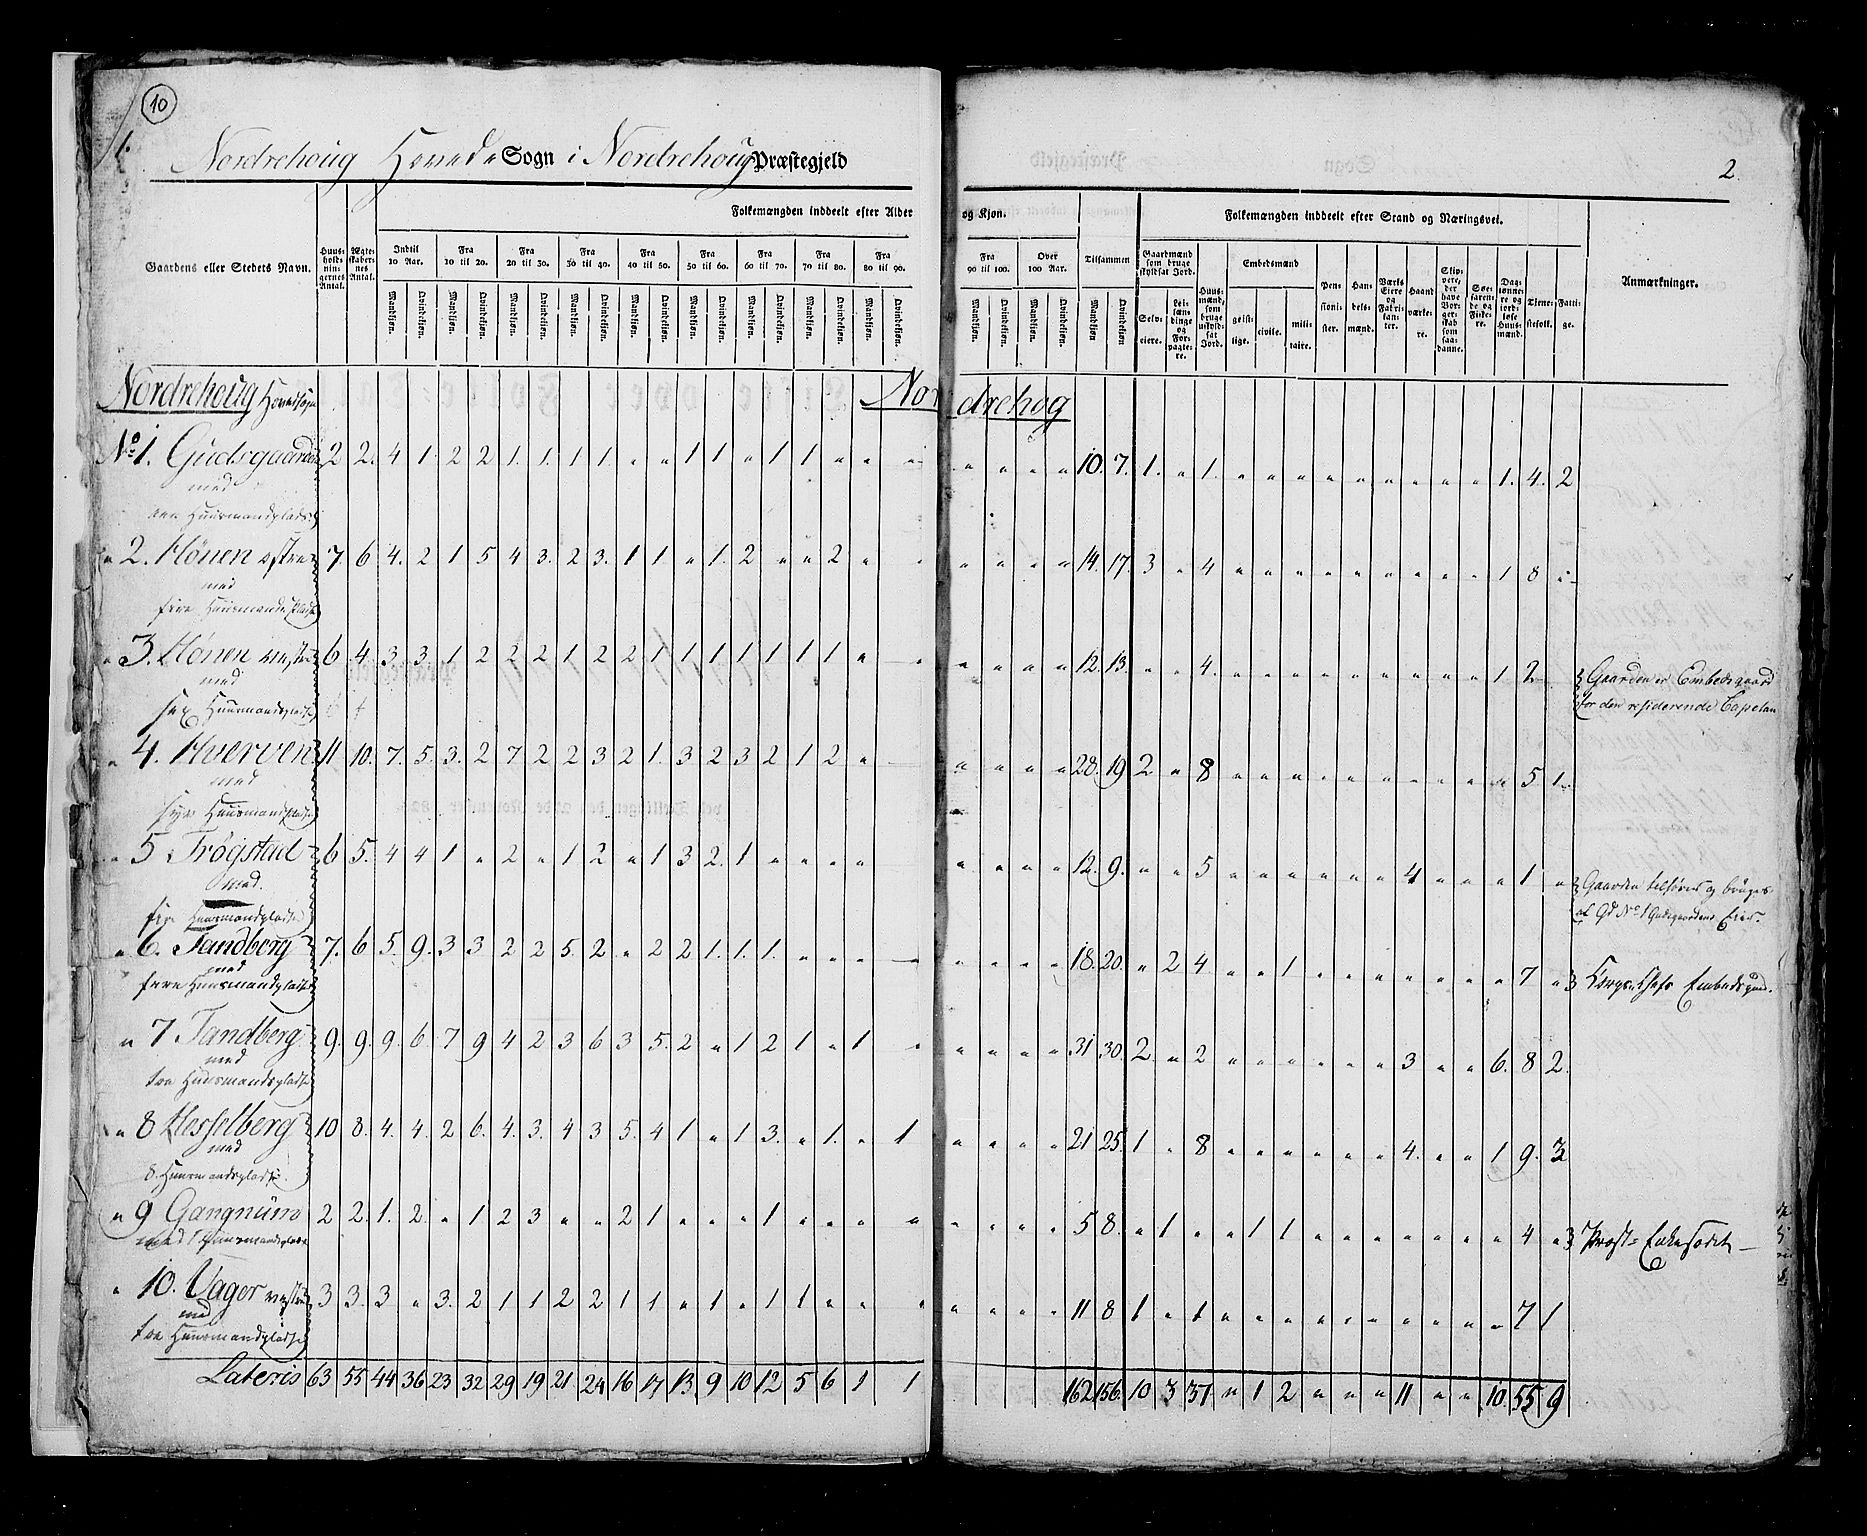 10
1.
Nordrehoug Hoveds Sogn i Nordrehoug Præstegjeld
2.
Gaardens eller Stedets Navn.
Huusholdningernes Antal.
Ægteskabernes Antal.
Folkemængden inddeelt efter Alder og Kjøn.
Indtil 10 Aar.
Fra 10 til 20.
Fra 20 til 30.
Fra 30 til 40.
Fra 40 til 50.
Fra 50 til 60.
Fra 60 til 70.
Fra 70 til 80.
Fra 80 til 90.
Fra 90 til 100.
Over 100 Aar.
Tilsammen
Mandkjøn. Qvindekjøn.
Folkemængden inddeelt efter Stand og Næringsvei.
Gaardmænd som bruge skyldsat Jord.
Selveiere.
Leilændinge og Forpagtere.
Huusmænd, som bruge uskyldsat Jord.
Embedsmænd
geistlige. civile. militaire.
Pensionister.
Handelsmænd.
Værks Eiere og Fabrikanter.
Haandværkere.
Skippere, der have Borgerskab som saadanne.
Søefarende og Fiskere.
Daglønnere og jordløse Huusmænd.
Tjenestefolk.
Fattige.
Anmærkninger.
Nordrehoug Hovedsogn
Nordrehog
No 1. Gudsgaarden 2 2. 4 1. 2 2 1. 1. 1 1. " " 1 1. " 1 1. " " " " " " " 10. 7. 1. " 1. " " " " " " " " " 1. 4. 2
med
een Huusmandplads
" 2. Hønen østre 7. 6 4. 2 1 5 4 3. 2 3. 1 1. " 1. 2 " " 2 " " " " " " 14. 17. 3 " 4 " " " " " " " " " 1 8 "
med
fire Huusmandsplads
" 3. Hønen vestre 6 4. 3. 3 1 2 2 2 1 2 2 1 1 1 1 1 1 1 " " " " " " 12. 13. " " 4. " " " " " " " " " 1 2 . Gaarden er Embedsgaard
med
for den residerende Capelan
sex Huusmandsplads
" 4. Hverven 11 10. 7. 5. 3. 2 7 2 2 3 2 1. 3 2 3 2 1 2 " " " " " 28. 19 2 " 8 " " " " " " " " " " 5 1.
med
syv Huusmandsplads
" 5 Trøgstad 6 5. 4 4 1 " 2 " 1 2 " 1 3 2. 1 " " " " " " " " 12. 9. " " 5 " " " " " " 4 " " " 1 " Gaarden tilhører og bruges
med.
af Gd No 1 Gudsgaardens Eier.
fire Huusmandpladse
" 6. Tandberg 7. 6 5. 9. 3 3 2 2 5. 2 " 2 2 1. 1. 1. " " " " " " " 18. 20. " 2 4 " " 1 " " " " " " " 7 "
med
fire Huusmandpladse
" 7 Tandberg 9. 9. 9. 6. 7 9 4 2 3 6 3 5. 2 " 1 2 1 " 1 " " " " " 31 30. 2 " 2 " " " " " " 3 " " 6. 8 2.
med
toe Huusmandspladse
" 8 Hesselberg 10 8. 4. 4. 2 6. 4. 3. 4 3 5. 4 1 " 1 3. " 1. " 1 " " " " 21 25. 1 " 8 " " " " " " 4. " " 1 9. 3
med
8. Huusmandspladse.
" 9 Gangnum 2 2. 1. 2 " 1 2 3 " " 2 1 " " " 1 " " " " " " " " 5 8. " 1 " " 1 1 " " " " " " " 4 "
med 1 Huusmandsplads
" 10. Vager vestre 3 3. 3 " 3. 2 1 1 2 2 1 1 " 1 " 1 1 " " " " " " " 11 8 1 " 1 " " " " " " " " " " 7 1
med
toe Huusmandpladse
Lateris 63 55 44 36 23 32 29 19 21 24 16 17 13 9 10 12 5 6 1 1 162 156 10 3 37 " 1 2 " " " 11 " " 10. 55 9